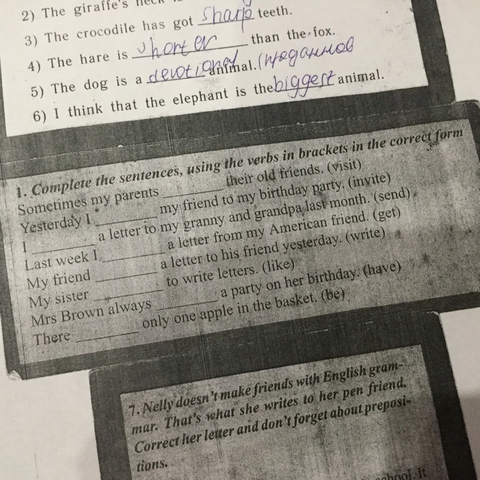 2) The giraffe's neck is
3) The crocodile has got sharp teeth.
4) The hare is shorter than the fox.
5) The dog is a devotional animal. (преданное
6) I think that the elephant is the biggest animal.
1. Complete the sentences, using the verbs in brackets in the correct form
Sometimes my parents ________ their old friends. (visit)
Yesterday I ________ my friend to my birthday party. (invite)
I ________ a letter to my granny and grandpa last month. (send)
Last week I ________ a letter from my American friend. (get)
My friend ________ a letter to his friend yesterday. (write)
My sister ________ to write letters. (like)
Mrs Brown always ________ a party on her birthday. (have)
There ________ only one apple in the basket. (be)
7. Nelly doesn't make friends with English gram-
mar. That's what she writes to her pen friend.
Correct her letter and don't forget about preposi-
tions.
school. It